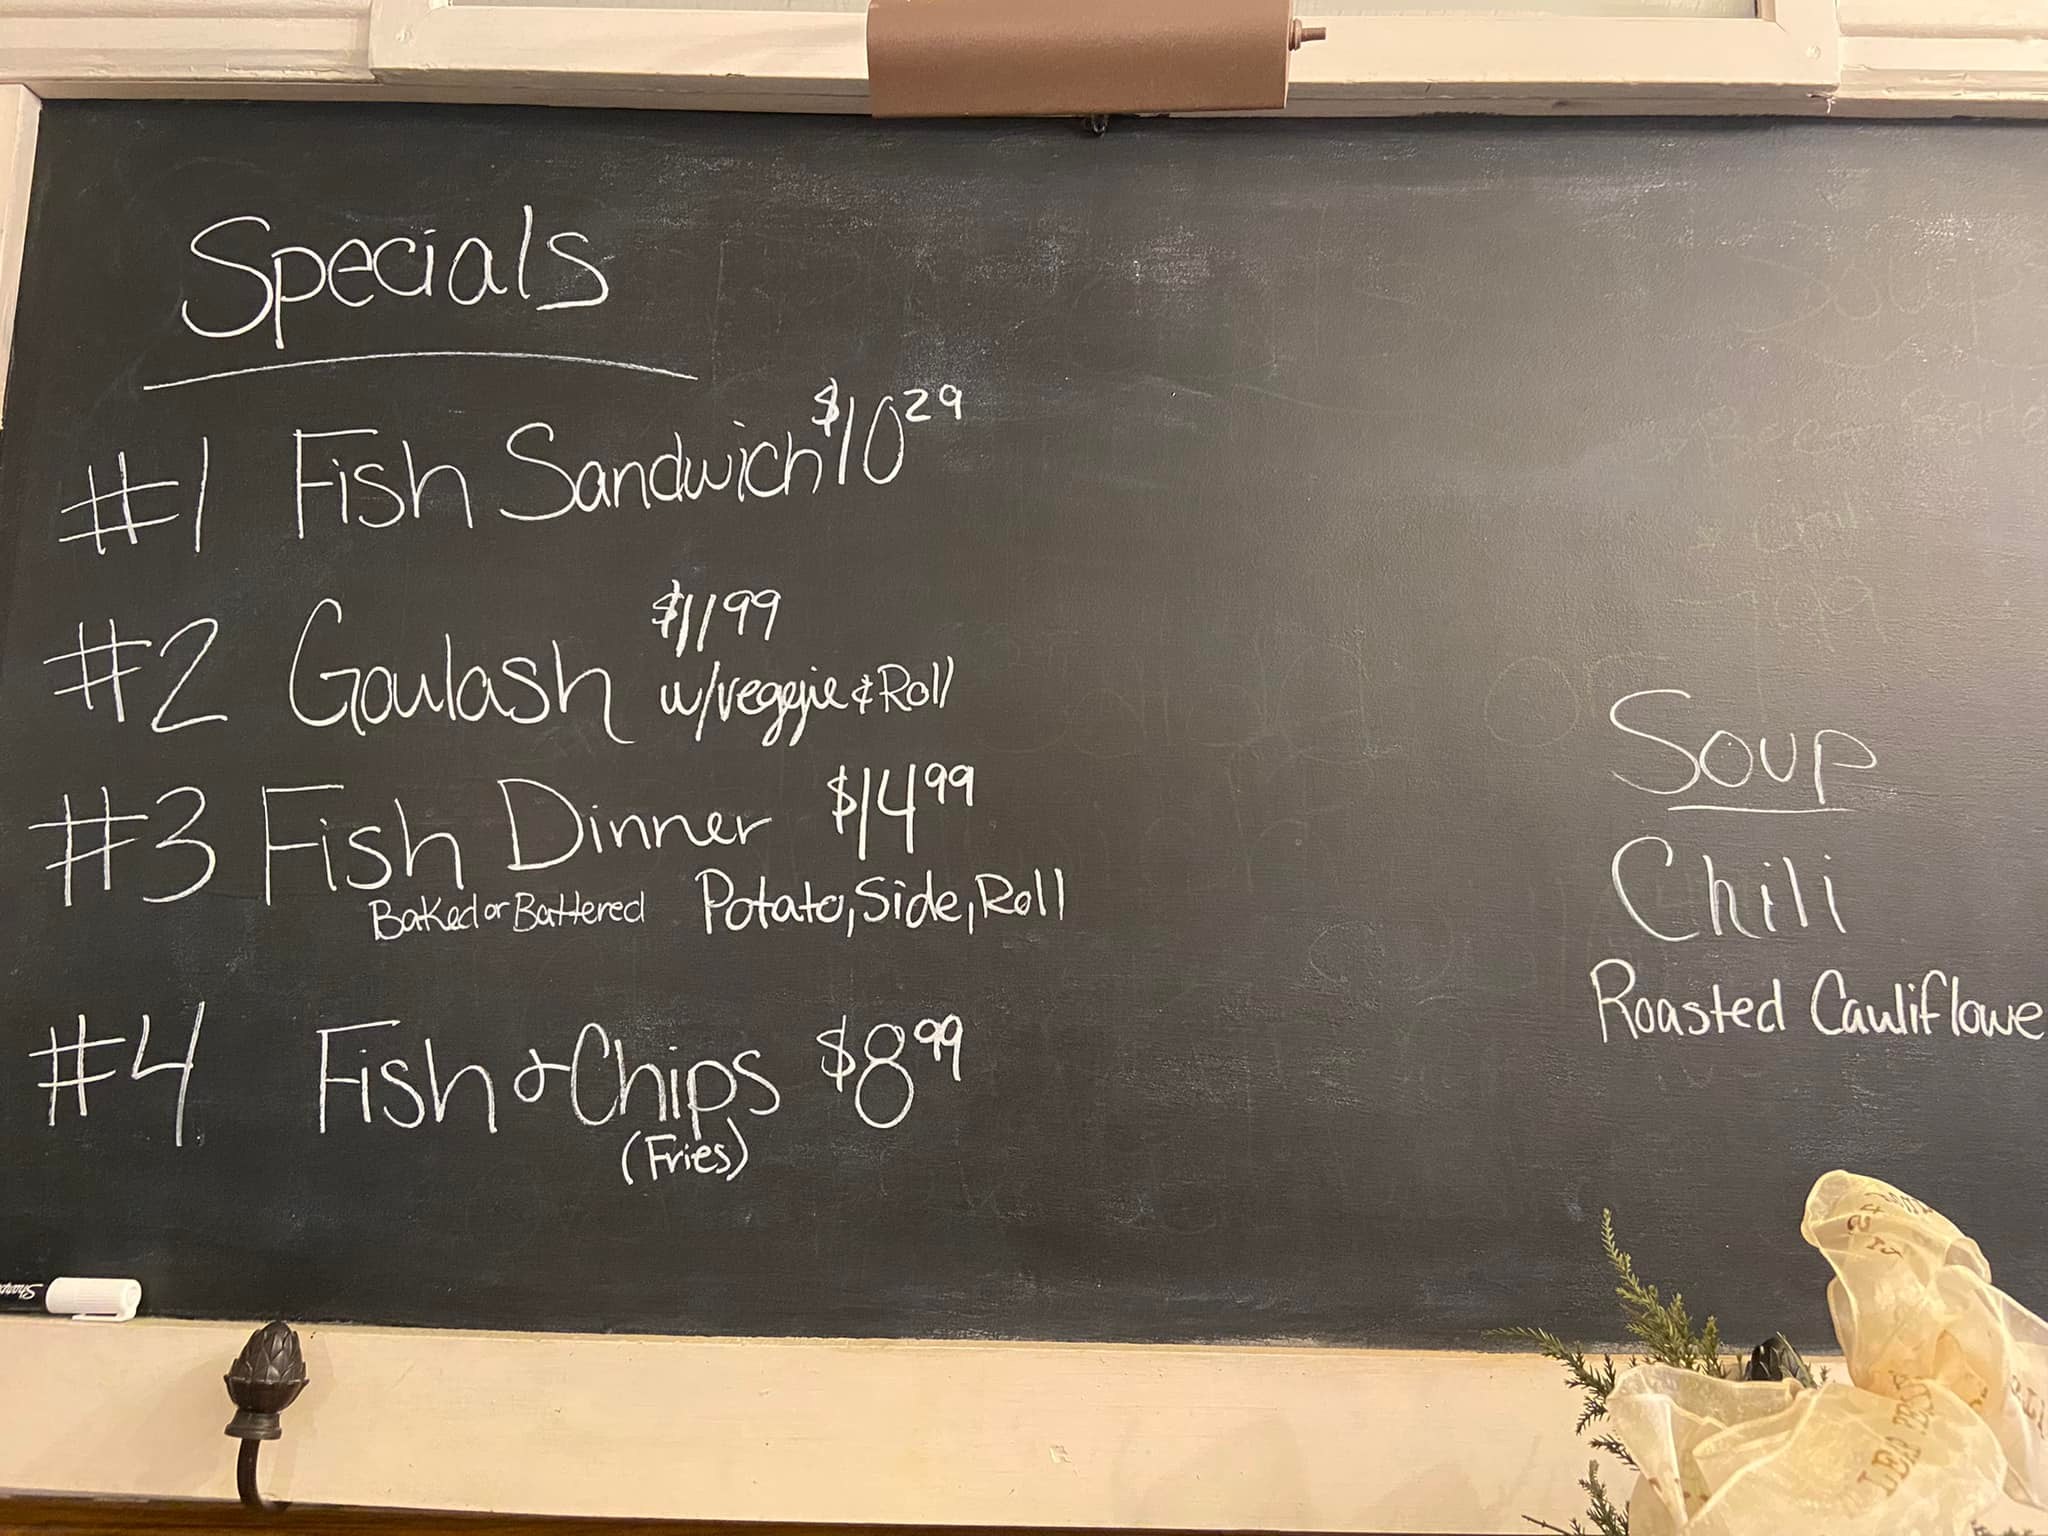 Specials
#1 Fish Sandwich $10 29
#2 Goulash $11 99
w/veggie & Roll
#3 Fish Dinner $14 99
Baked or Battered Potato, Side, Roll
#4 Fish & Chips $8 99
(Fries)
Soup
Chili
Roasted Cauliflowe